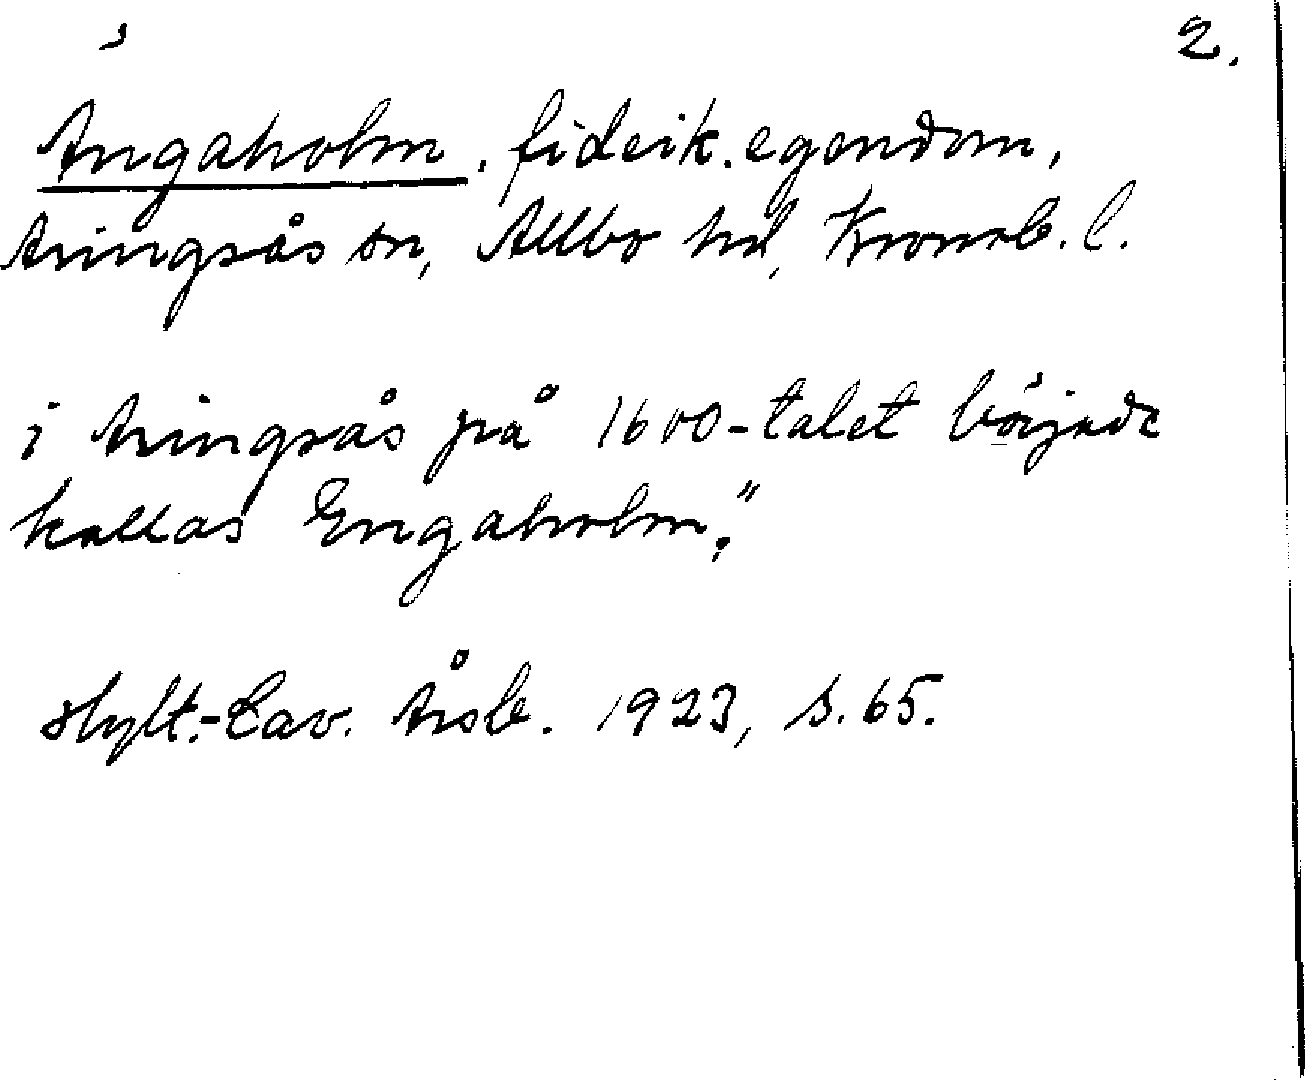 2.
Ängaholm, fideik. egendom,
Aringsås sn, Allbo hd, Kronob. l.
i Aringsås på 1600-talet började
kallas Engaholm."
Hylt.-Cav. Årsb. 1923, s. 65.